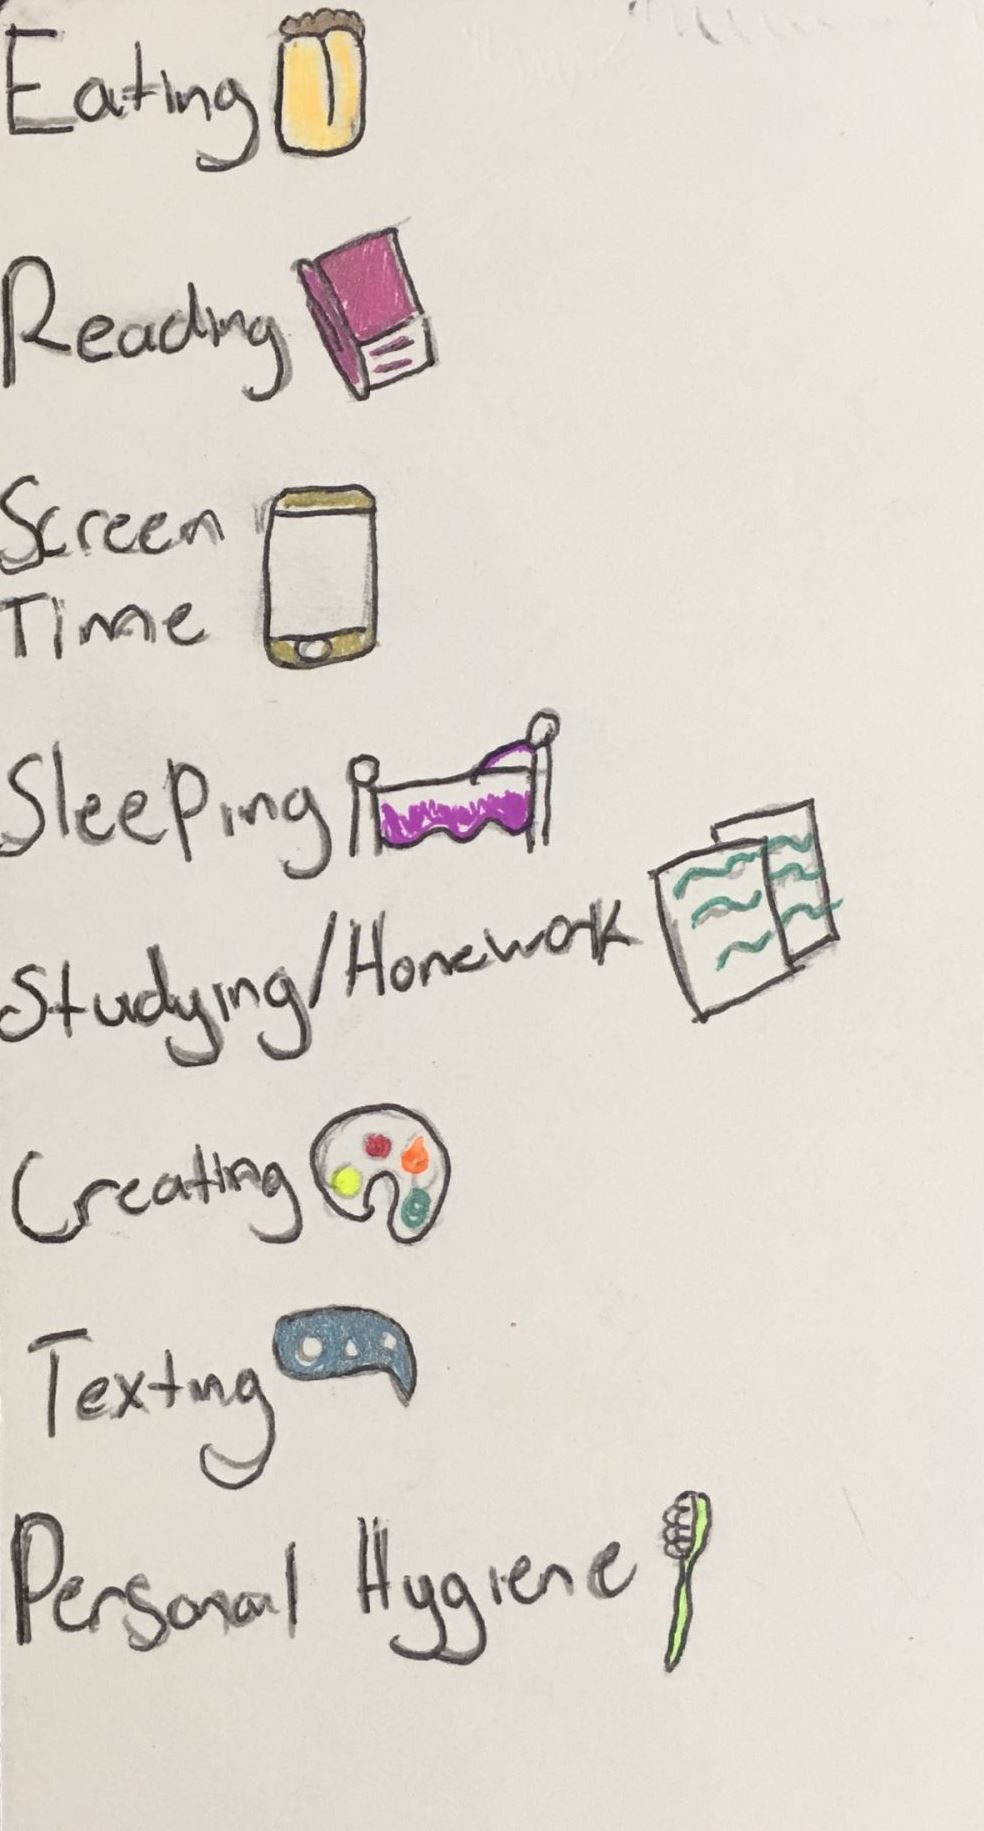 Eating
Reading
Screen
Time
Sleeping
Studying/Homework
Creating
Texting
Personal Hygiene